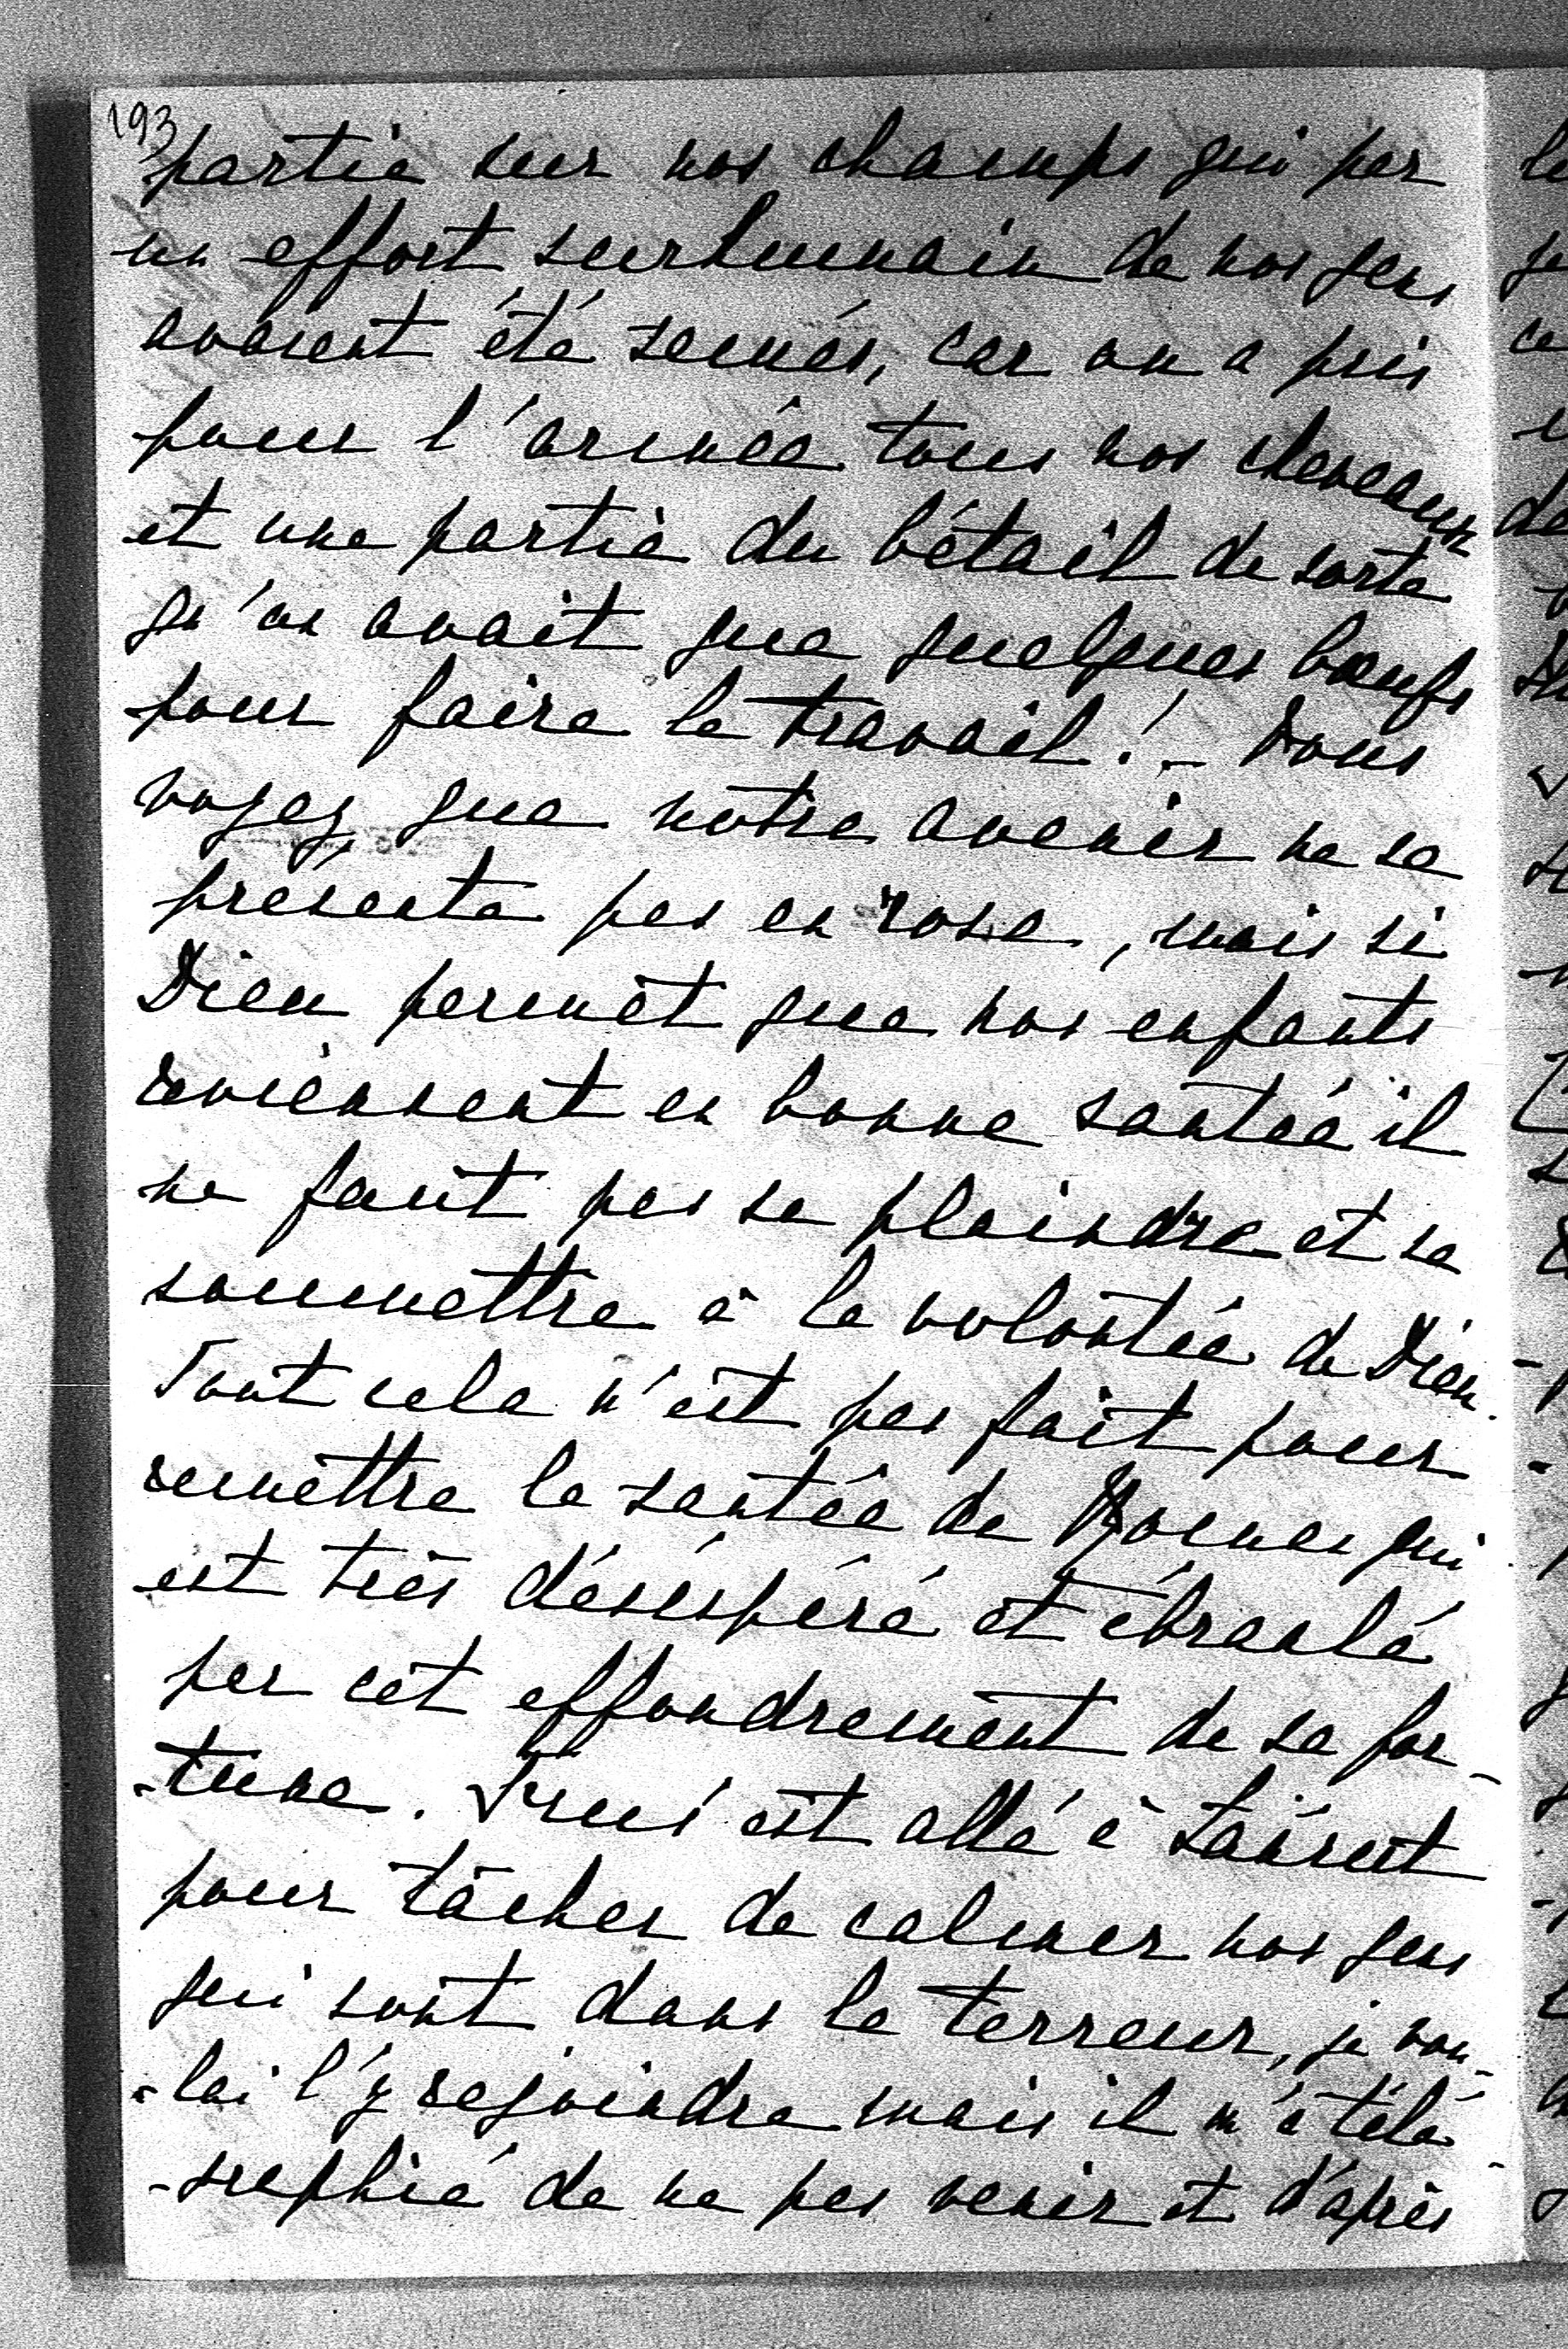 193
partie sur nos champs qui par
un effort surhumain de nos gens
avaient été semés, car on a pris
pour l'armée tous nos cheveaux
et une partie du bétail de sorte
qu'on avait que quelques bœufs
pour faire le travail! – Vous
voyez que notre avenir ne se
présente pas en rose, mais si
Dieu permet que nos enfants
reviennent en bonne santée il
ne faut pas se plaindre et se
soumettre à la volontée de Dieu.
Tout cela n'est pas fait pour
remettre la santée de qui
est très désespéré et ébranlé
par cet effondrement de sa for-
-tune. est allé à Laňcut
pour tâcher de calmer nos gens
qui sont dans la terreur, je vou-
-lai l'y rejoindre mais il m'a télé-
-graphié de ne pas venir et d'après